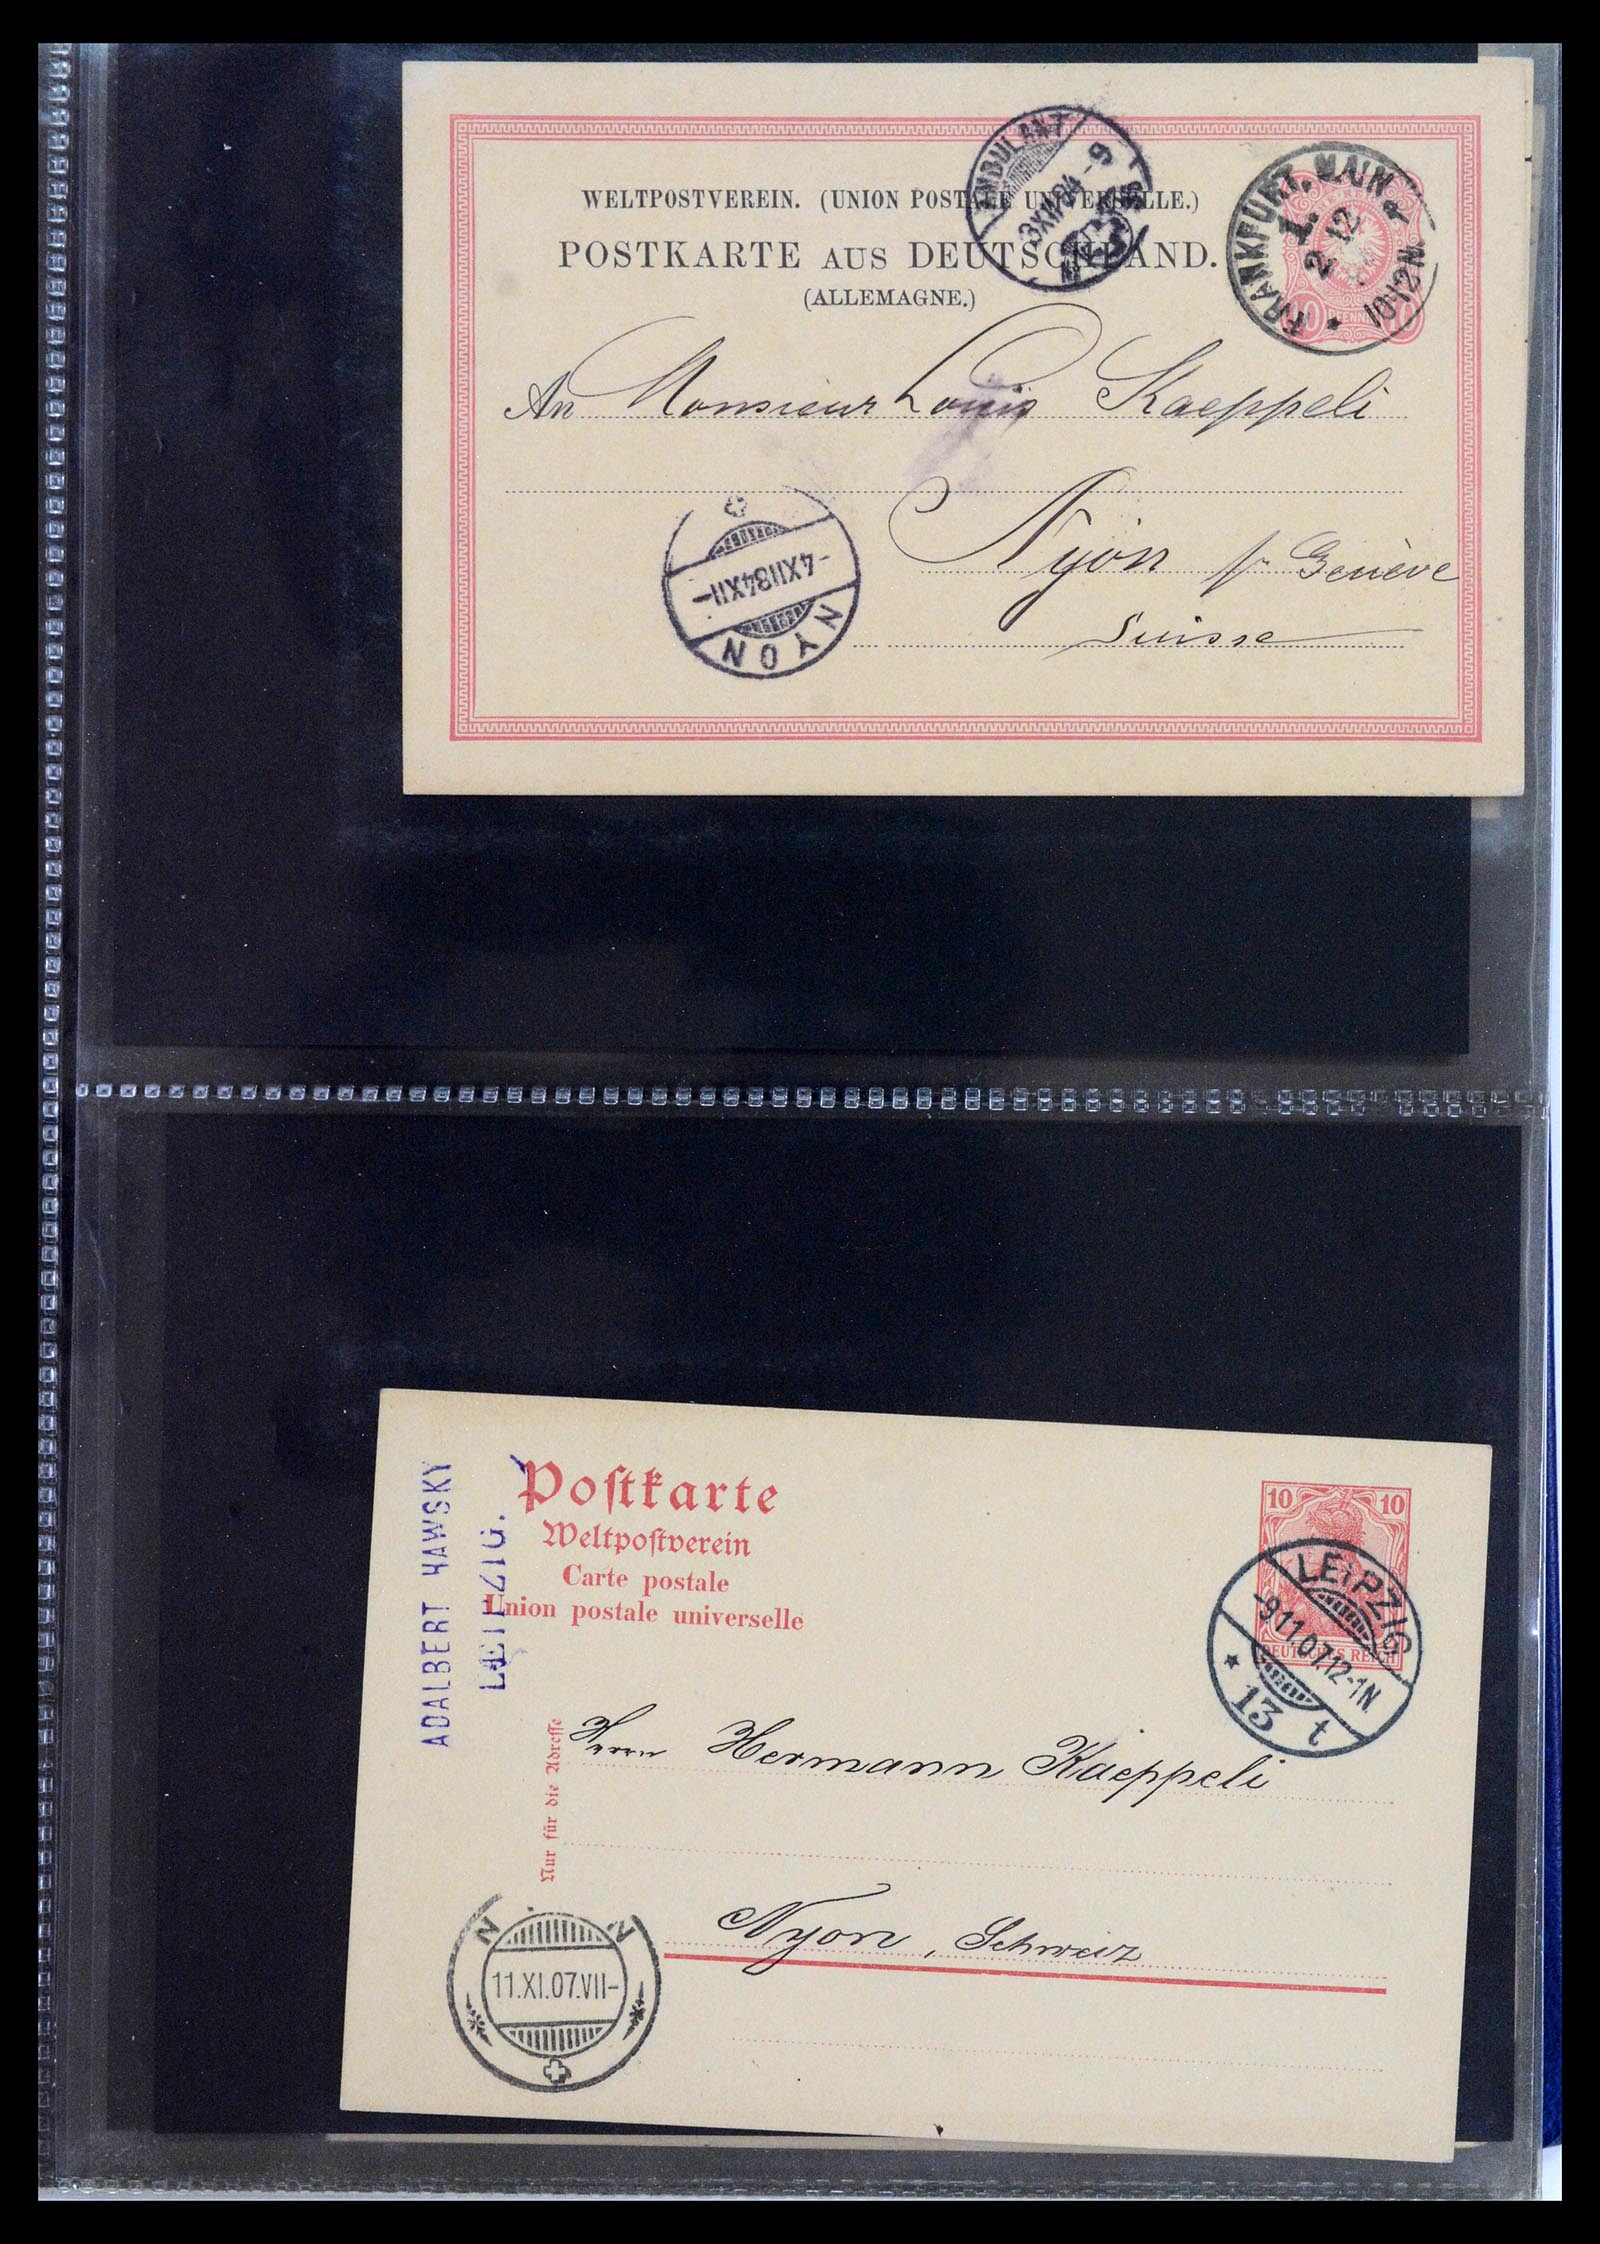 WELTPOSTVEREIN. (UNION POSTALE UNIVERSELLE.)
POSTKARTE AUS DEUTSCHLAND.
(ALLEMAGNE.)
AMBULANT
3XII84-9
FRANKFURT. MAIN.
1.
2 12
10-12N.
10 PFENNIG 10
An Monsieur Louis Kaeppeli
Nyon pr Genève
Suisse
-4XII84XII-
NYON
ADALBERT HAWSKY
LEIPZIG.
Postkarte
Weltpostverein
Carte postale
Union postale universelle
10 10
DEUTSCHES REICH
LEIPZIG
-9.11.07.12-1N
* 13 t
Nur für die Adresse
Herrn Hermann Kaeppeli
Nyon, Schweiz
N N
11.XI.07.VII-